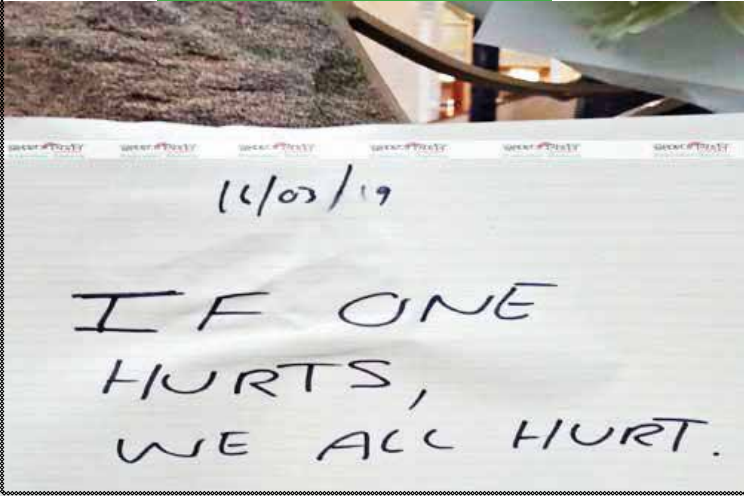 16/03/19
IF ONE
HURTS,
WE ALL HURT.